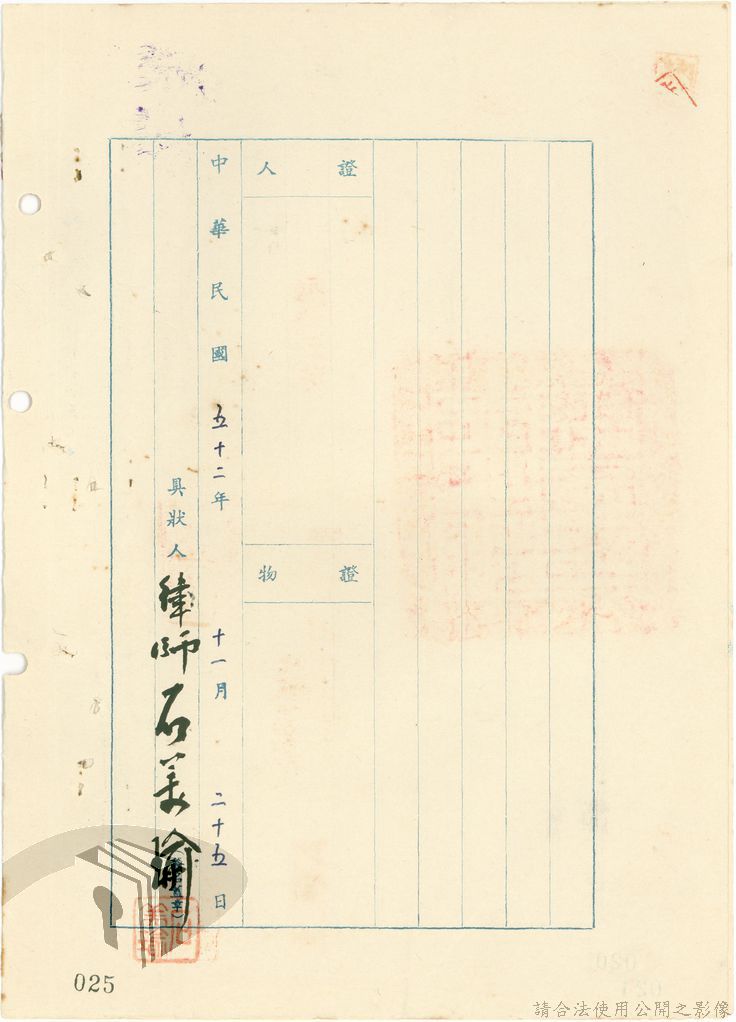 證人
證物
中華民國五十二年十一月二十五日
具狀人律師石美瑜
025
請合法使用公開之影像